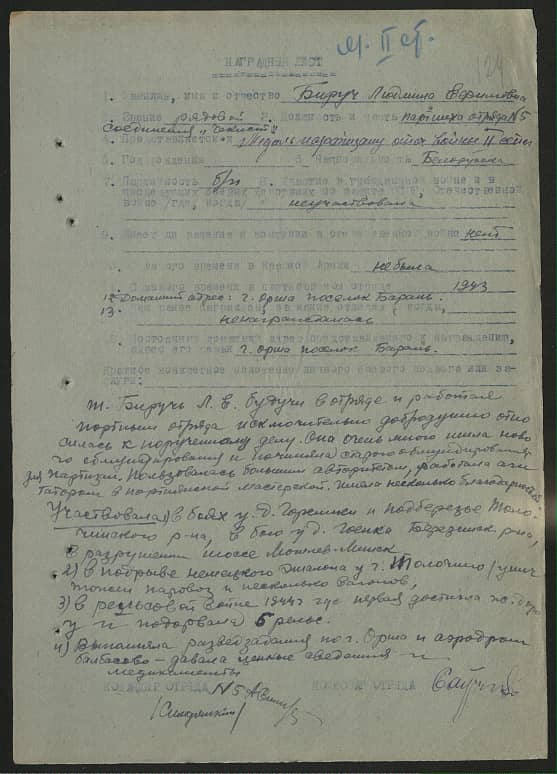 М. II ст.
НАГРАДНОЙ ЛИСТ
1. Фамилия, имя и отчество Бируч Людмила Ефимовна
2. Звание рядовой 3. Должность и часть партизанка отряда №5
соединения
4. Представляется к Медаль партизану отеч. войны II степ.
5. Год рождения 6. Национальность Белоруска
7. Партийность б/п 8. Участие в гражданской войне и в
последующих боевых действиях по защите СССР, Отечественной
войне /где, когда/ неучаствовала
9. Имеет ли ранения и контузии в отечественной войне нет
С какого времени в Красной Армии небыла
С какого времени в партизанском отряде 1943
12 Домашний адрес: г. Орша поселок Барань.
13. Чем ранее награжден, за какие отличия, когда,
ненаграждалась
Постоянный домашний адрес представляемого к награждению,
адрес его семьи г. Орша поселок Барань.
Краткое конкретное изложение личного боевого подвига или за-
слуг:
т. Бируч Л. Е. будучи в отряде и работая
портным отряда исключительно добродушно отно
силась к порученному делу. Она очень много шила ново
го обмундирования и починяла старого обмундирования
для партизан. Пользовалась большим авторитетом, работала аги
татором в портняжской мастерской. Имела несколько благодарностей
Участвовала 1) в боях у д. и подберезье Толо
чинского р-на, в бою у д. Гоенка р-на,
в разрушении шоссе Могилев-Минск
2) в подрыве немецкого эшелона у г. Толочин / унич
тожен паровоз и несколько вагонов,
3) в рельсовой войне 1944 г где первая достигла ж. д
у и подорвала 5 рельс.
4) Выполняла разведзадания по г. Орша и аэродром
балбасово – давала ценные сведения и
медикаменты
КОМАНДИР ОТРЯДА №5 КОМИССАР ОТРЯДА